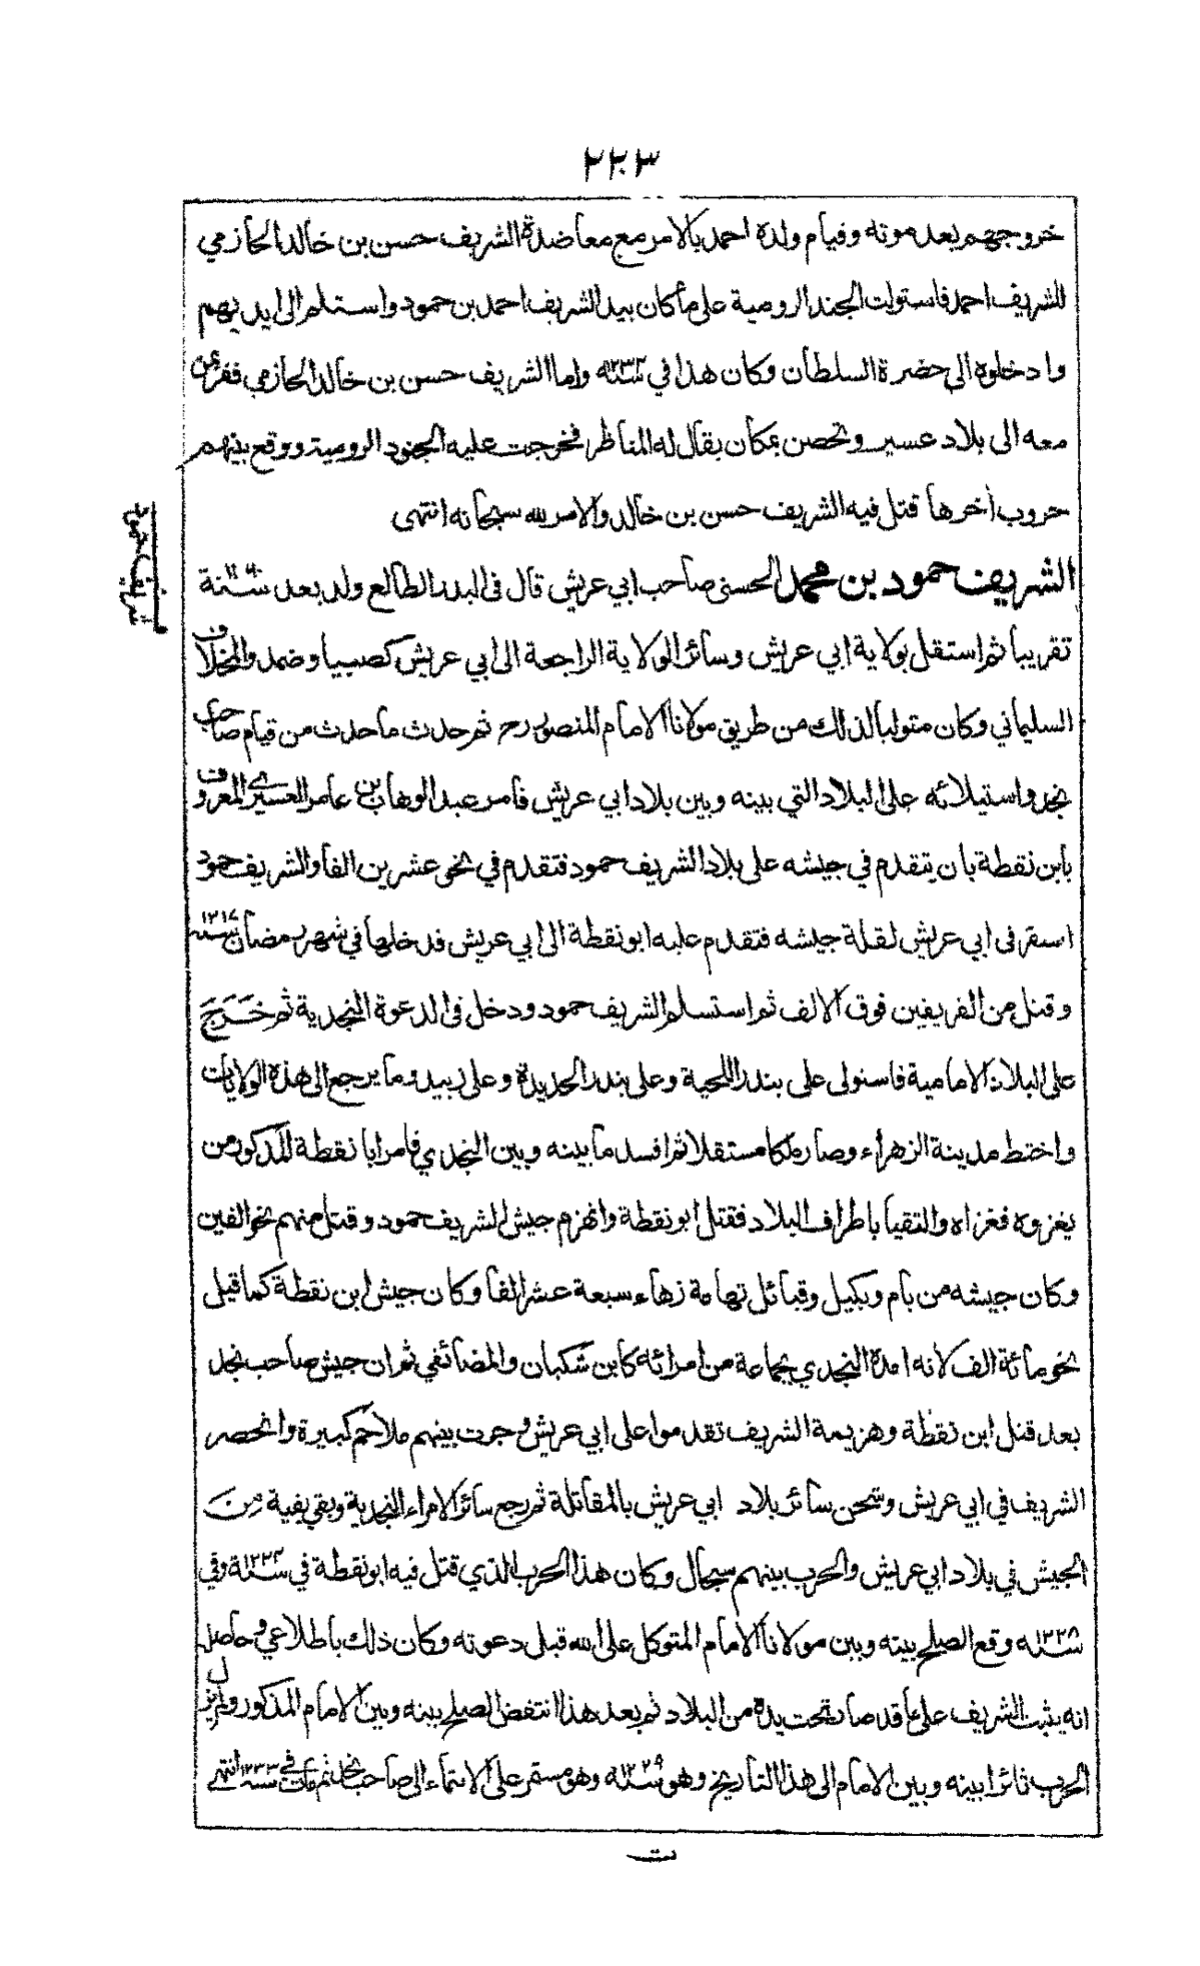 ٢٢٣
خروجهم بعد موته وقيام ولده احمد بالامر مع معاضدة الشريف حسن بن خالد الحازمي
للشريف احمد فاستولت الجند الرومية على ما كان بيد الشريف احمد بن حمود واستلم الى ايديهم
وادخلوه الى حضرة السلطان وكان هذا في سنة ١٢٣٣ واما الشريف حسن بن خالد الحازمي ففر بمن
معه الى بلاد عسير وتحصن بمكان يقال له المناظر فخرجت عليه الجنود الرومية ووقع بينهم
حروب أخرها قتل فيه الشريف حسن بن خالد والامر لله سبحانه انتهى
الشريف حمود بن محمد الحسني صاحب ابي عريش قال في البدر الطالع ولد بعد سنة
تقريبا ثم استقل بولاية ابي عريش وسائر الولاية الراجعة الى ابي عريش كصبيا وضمد والمخلاف
السليماني وكان متوليا لذلك من طريق مولانا الامام المنصور رح ثم حدث ما حدث من قيام صاحب
نجد واستيلائه على البلاد التي بينه وبين بلاد ابي عريش فامر عبد الوهاب بن عامر العسيري المعروف
بابن نقطة بان يتقدم في جيشه على بلاد الشريف حمود فتقدم في نحو عشرين الفا والشريف حمود
استقر في ابي عريش لقلة جيشه فتقدم عليه ابو نقطة الى ابي عريش فدخلها في شهر رمضان سنة ١٢١٧
وقتل من الفريقين فوق الالف ثم استسلم الشريف حمود ودخل في الدعوة النجدية ثم خَرَجَ
على البلاد الامامية فاستولى على بندر اللحية وعلى بندر الحديدة وعلى زبيد وما يرجع الى هذه الولايات
واختط مدينة الزهراء وصار ملكا مستقلا ثم افسد ما بينه وبين النجدي فامر ابا نقطة المذكور من
يغزوه فغزاه والتقيا باطراف البلاد فقتل ابو نقطة وانهزم جيش الشريف حمود وقتل منهم نحو الفين
وكان جيشه من يام وبكيل وقبائل تهامة زهاء سبعة عشر الفا وكان جيش ابن نقطة كما قيل
نحو مائة الف لانه امده النجدي بجماعة من امرائه كابن شكبان والمضائفي ثم ان جيش صاحب نجد
بعد قتل ابن نقطة وهزيمة الشريف تقدموا على ابي عريش وجرت بينهم ملاحم كبيرة وانحصر
الشريف في ابي عريش وشحن سائر بلاد ابي عريش بالمقاتلة ثم رجع سائر الامراء النجدية وبقي بقية مِنَ
الجيش في بلاد ابي عريش والحرب بينهم سجال وكان هذا الحرب الذي قتل فيه ابو نقطة في سنة ١٢٢٤ وفي
سنة ١٢٢٨ وقع الصلح بينه وبين مولانا الامام المتوكل على الله قبل دعوته وكان ذلك باطلاعي وحاصل
انه يثبت الشريف على ما قد صار تحت يده من البلاد ثم بعد هذا انتقض الصلح بينه وبين الامام المذكور ولم يزل
الحرب ثائرا بينه وبين الامام الى هذا التاريخ وهو سنة ١٢٢٩ وهو مستمر على الانتماء الى صاحب نجد ثم مات في سنة ١٢٣٣ انتهى
شريف حمود